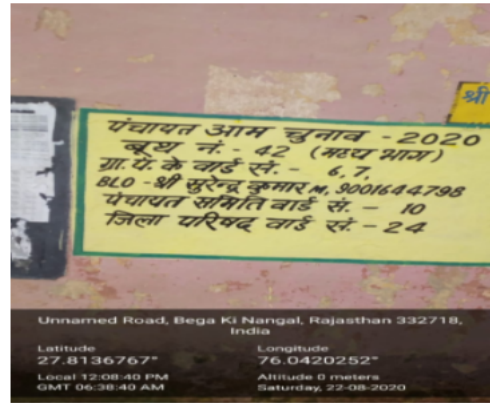 श्री
पंचायत आम चुनाव - 2020
बूथ नं. - 42 (मध्य भाग)
ग्रा.पं. के वार्ड सं. - 6, 7,
BLO - श्री सुरेन्द्र कुमार M. 9001644798
पंचायत समिति वार्ड सं. - 10
जिला परिषद वार्ड सं. - 24
Unnamed Road, Bega Ki Nangal, Rajasthan 332718,
India
Latitude Longitude
27.8136767° 76.0420252°
Local 12:08:40 PM Altitude 0 meters
GMT 06:38:40 AM Saturday, 22-08-2020